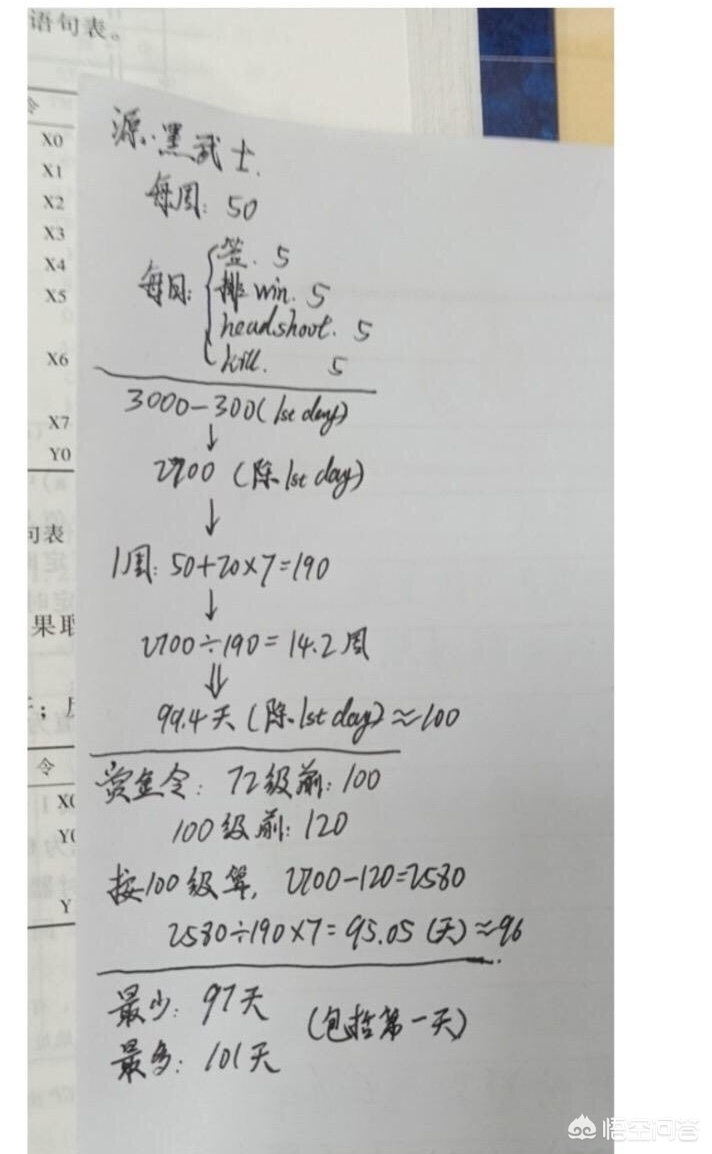 语句表。
令
X0
X1
X2
X3
X4
X5
X6
X7
Y0
句表
果取
令
X0
Y0
Y
源·黑武士.
每周: 50
每日: 签. 5
排win. 5
headshoot. 5
kill. 5
3000-300(1st day)
↓
2700 (除1st day)
↓
1周: 50+20×7=190
↓
2700÷190=14.2周
⇓
99.4天 (除1st day)≈100
赏金令: 72级前: 100
100级前: 120
按100级算, 2700-120=2580
2580÷190×7=95.05 (天)≈96
最少: 97天
(包括第一天)
最多: 101天
悟空问答